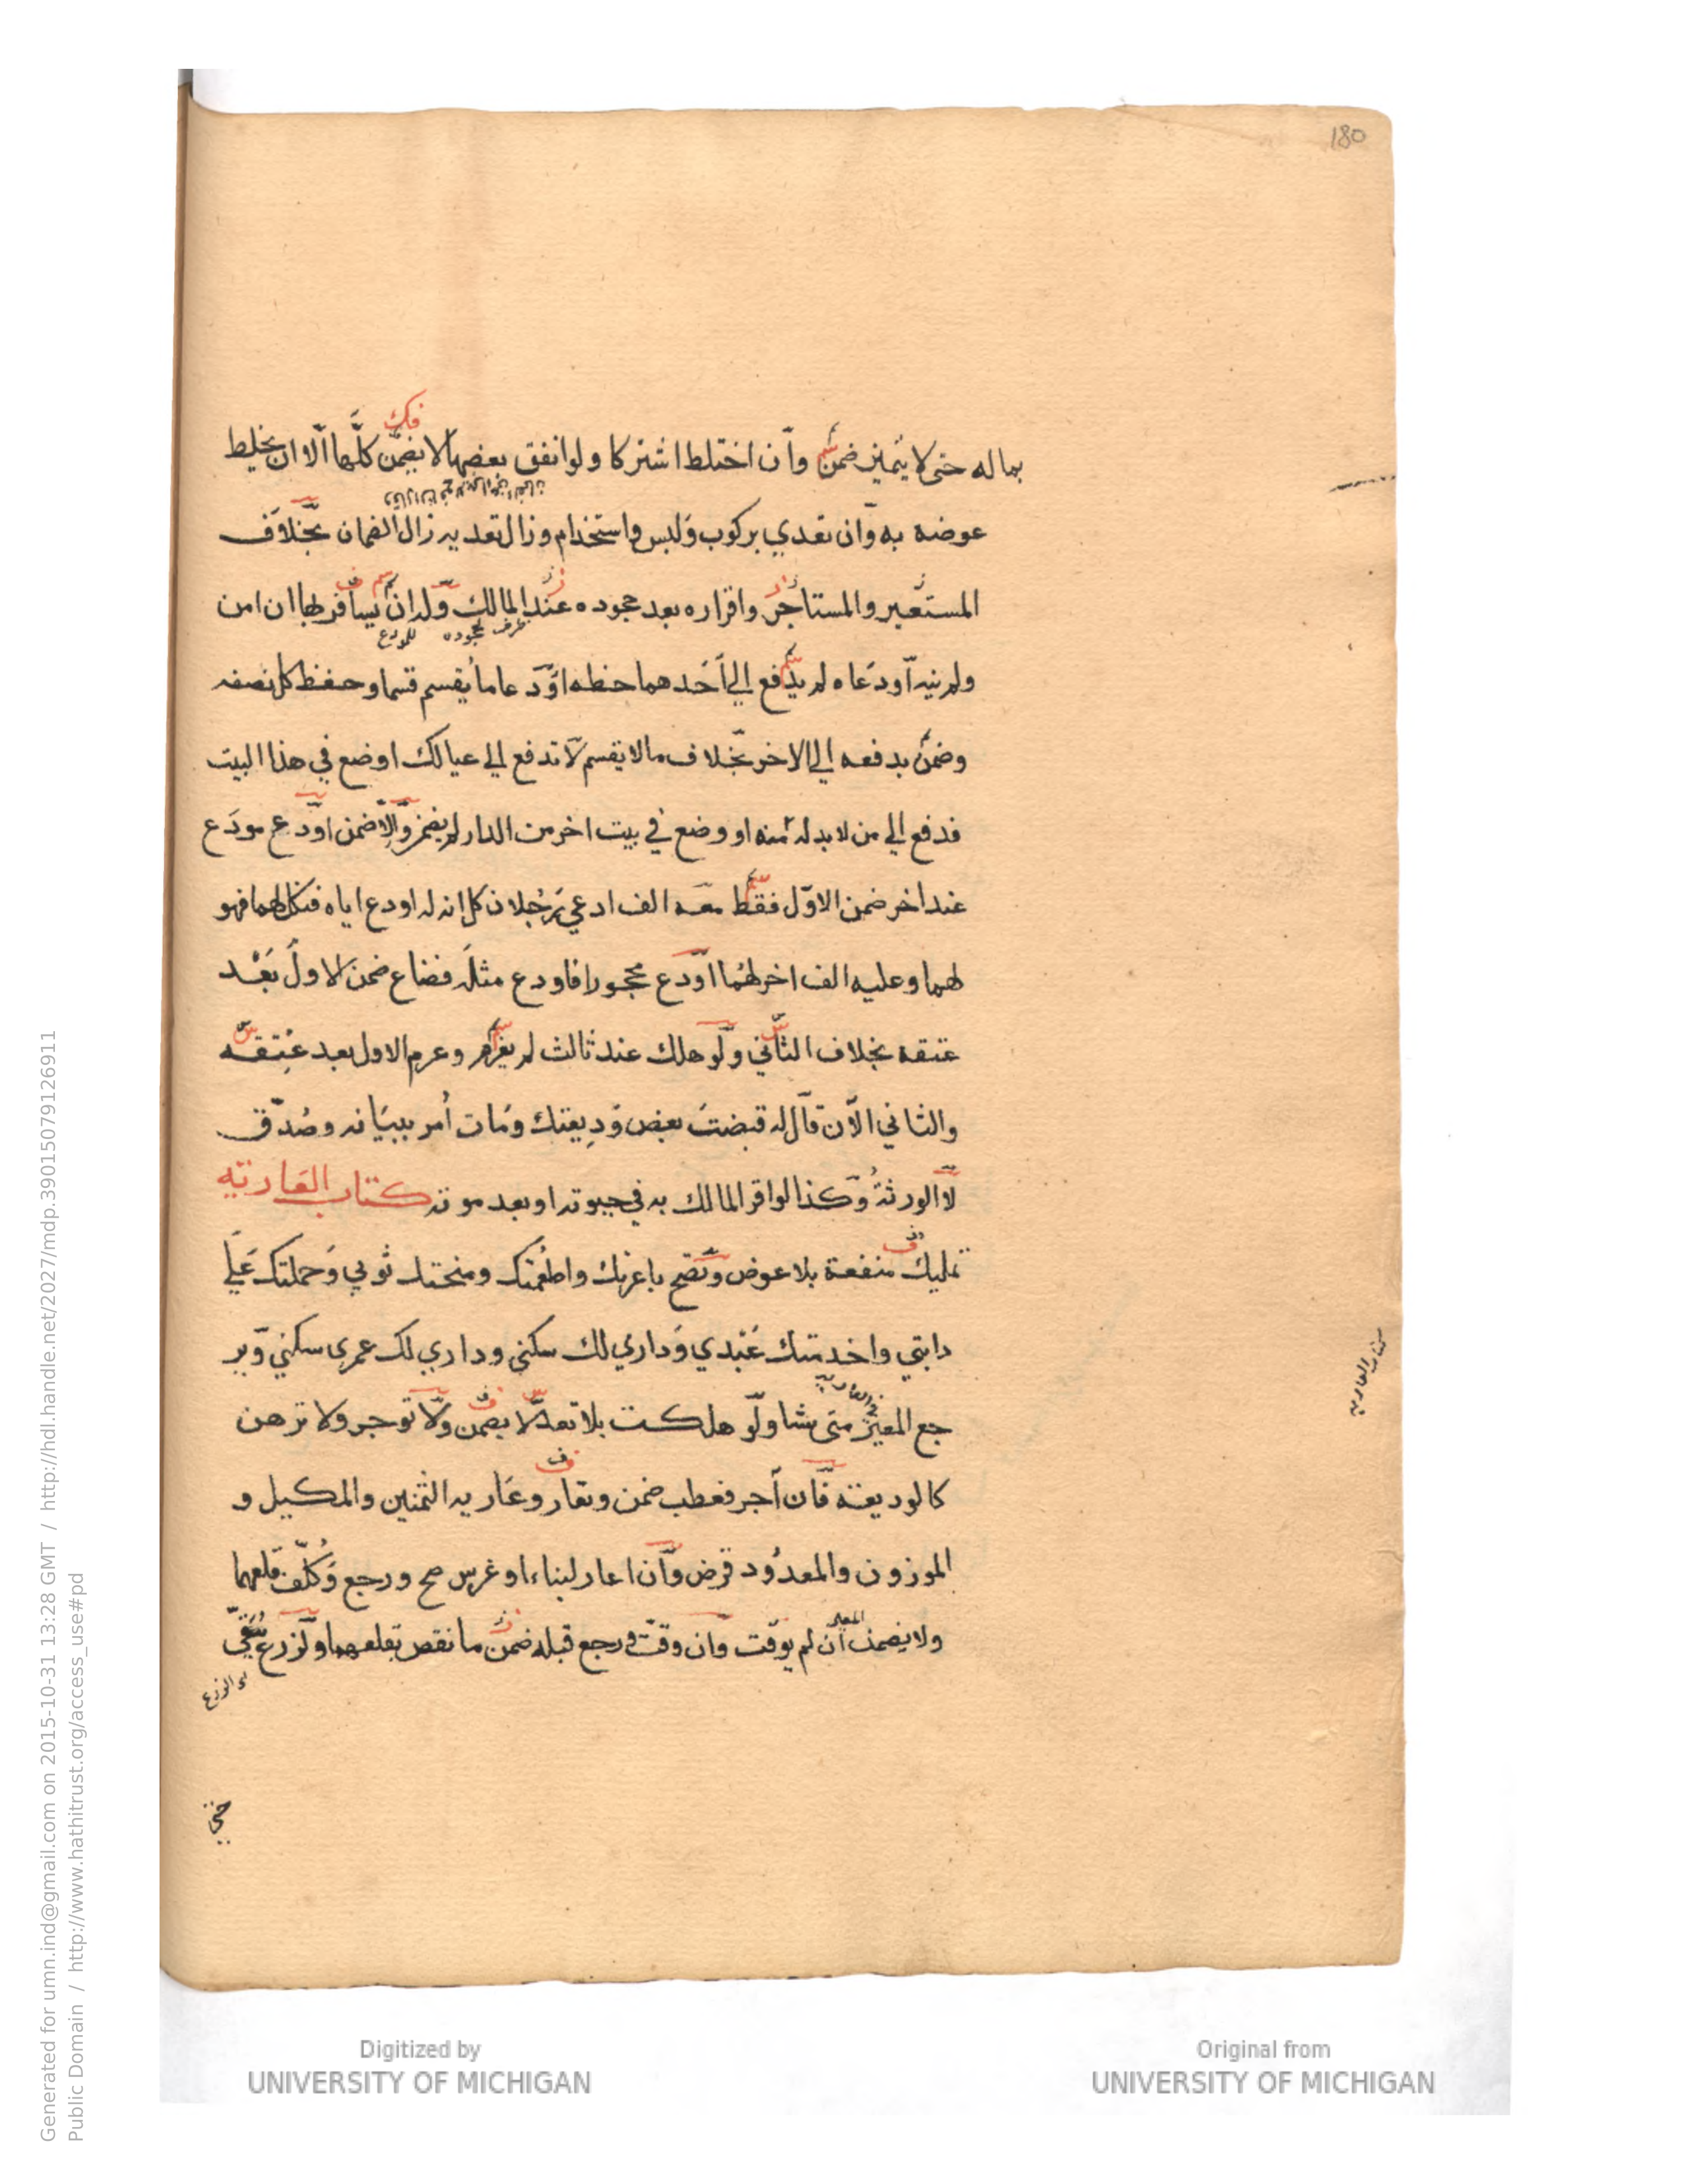 180
بماله حتى لا يتميز ضمن وان اختلط اشتركا ولو انفق بعضها لا يضمن كلها الا ان يخلط
عوضه به وان تعدي بركوب ولبس واستخدام وزال تعديه زال الضمان بخلاف
المستعير والمستاجر واقراره بعد جحوده عند المالك وله ان يسافر بها ان امن
ولم ينه اودعاه لم يدفع الي احدهما حظه اودعا ما يقسم قسما وحفظ كل نصفه
وضمن بدفعه الي الاخر بخلاف ما لا يقسم لا تدفع الي عيالك او ضع في هذا البيت
فدفع الي من لا بد له منه او وضع في بيت اخر من الدار لم يضمن والا ضمن اودع مودع
عند اخر ضمن الاول فقط معه الف ادعي رجلان كل انه له اودع اياه فنكل لهما فهو
لهما وعليه الف اخر لهما اودع محجورا فاودع مثله فضاع ضمن الاول بعد
عتقه بخلاف الثاني ولو هلك عند ثالث لم يغرم وغرم الاول بعد عتقه
والثاني الان قال له قبضت بعض وديعتك ومات امر ببيانه وصدق
لا الورثة وكذا لو اقر المالك به في حيوته او بعد موته كتاب العارية
تمليك منفعة بلا عوض وتصح باعرتك واطعمتك ومنحتك ثوبي وحملتك علي
دابتي واخدمتك عبدي وداري لك سكنى وداري لك عمرى سكني وير
جع المعير متى شا ولو هلكت بلا تعد لا يضمن ولا توجر ولا ترهن
كالوديعة فان آجر فعطب ضمن وتعار وعارية الثمنين والمكيل و
الموزون والمعدود قرض وان اعار لبناء او غرس صح ورجع وكلف قلعهما
المعير
ولا يضمن ان لم يوقت وان وقت ورجع قبله ضمن ما نقص بقلعهما ولزرع يبقي
حتى
Generated for umn.ind@gmail.com on 2015-10-31 13:28 GMT / http://hdl.handle.net/2027/mdp.39015079126911
Public Domain / http://www.hathitrust.org/access_use#pd
Digitized by
UNIVERSITY OF MICHIGAN
Original from
UNIVERSITY OF MICHIGAN